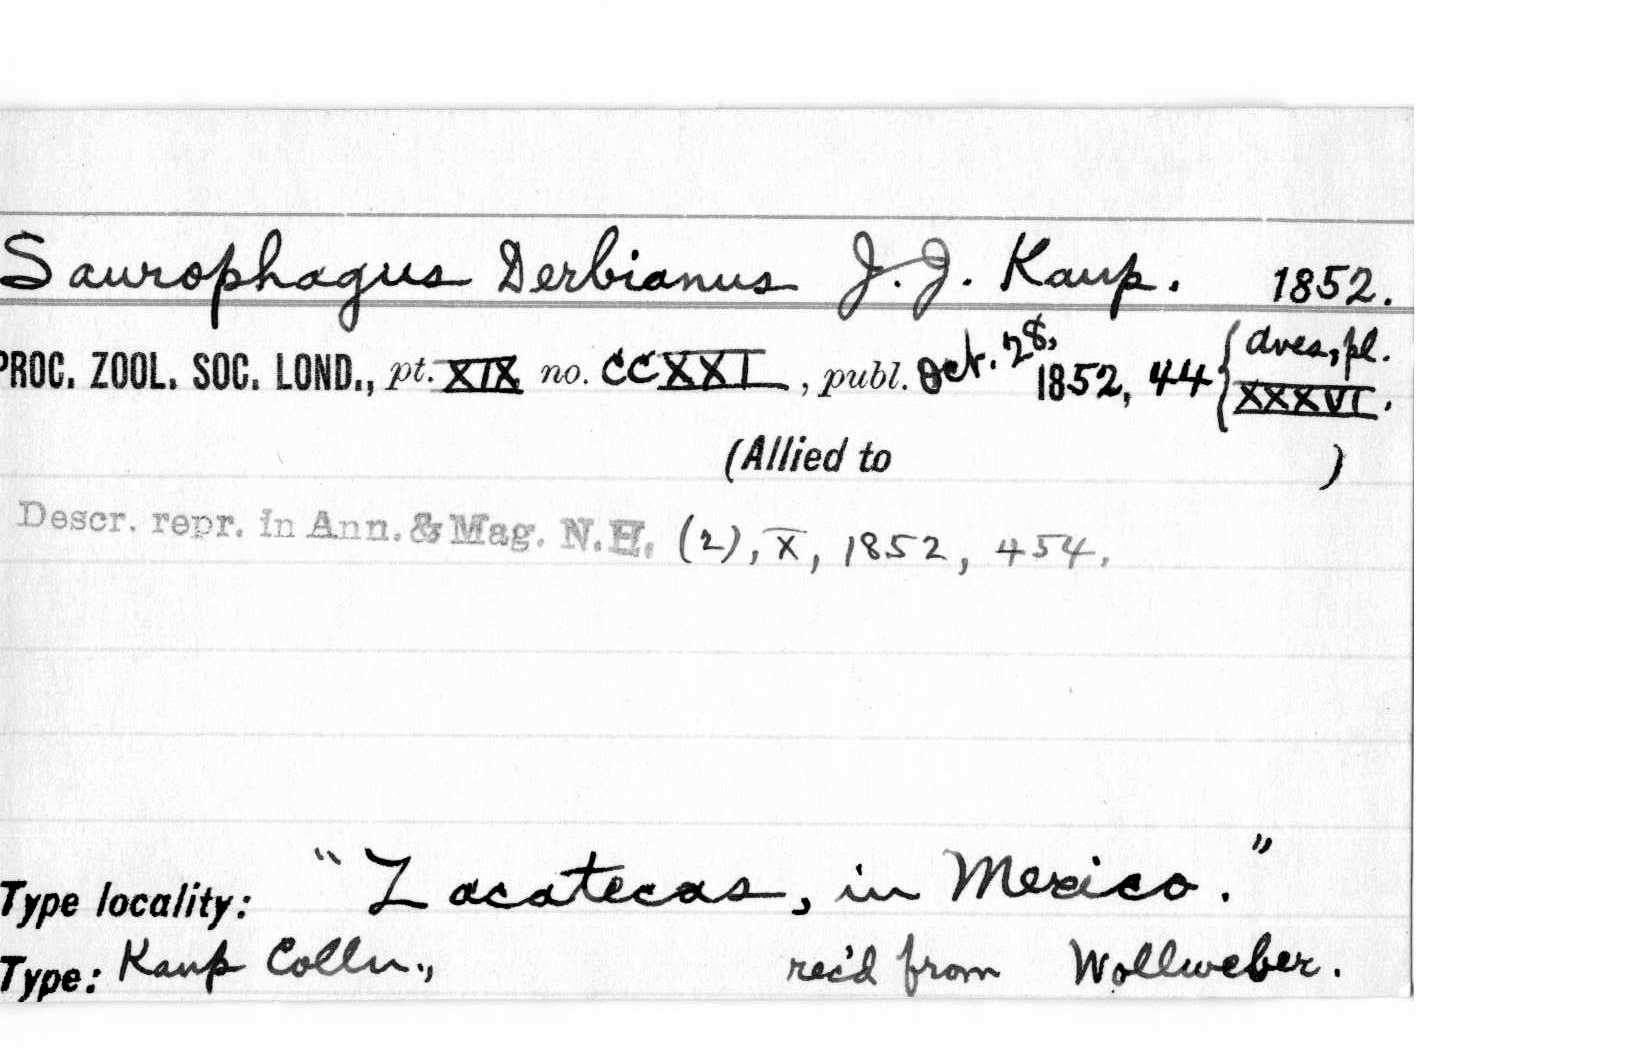 Saurophagus Derbianus J. J. Kaup. 1852.
PROC. ZOOL. SOC. LOND., pt. XIX no. CCXXI, publ. Oct. 28, 1852, 44 { Aves, pl. XXXVI.
(Allied to )
Descr. repr. in Ann. & Mag. N.H. (2), X, 1852, 454.
Type locality: "Zacatecas, in Mexico."
Type: Kaup Colln., rec'd from Wollweber.